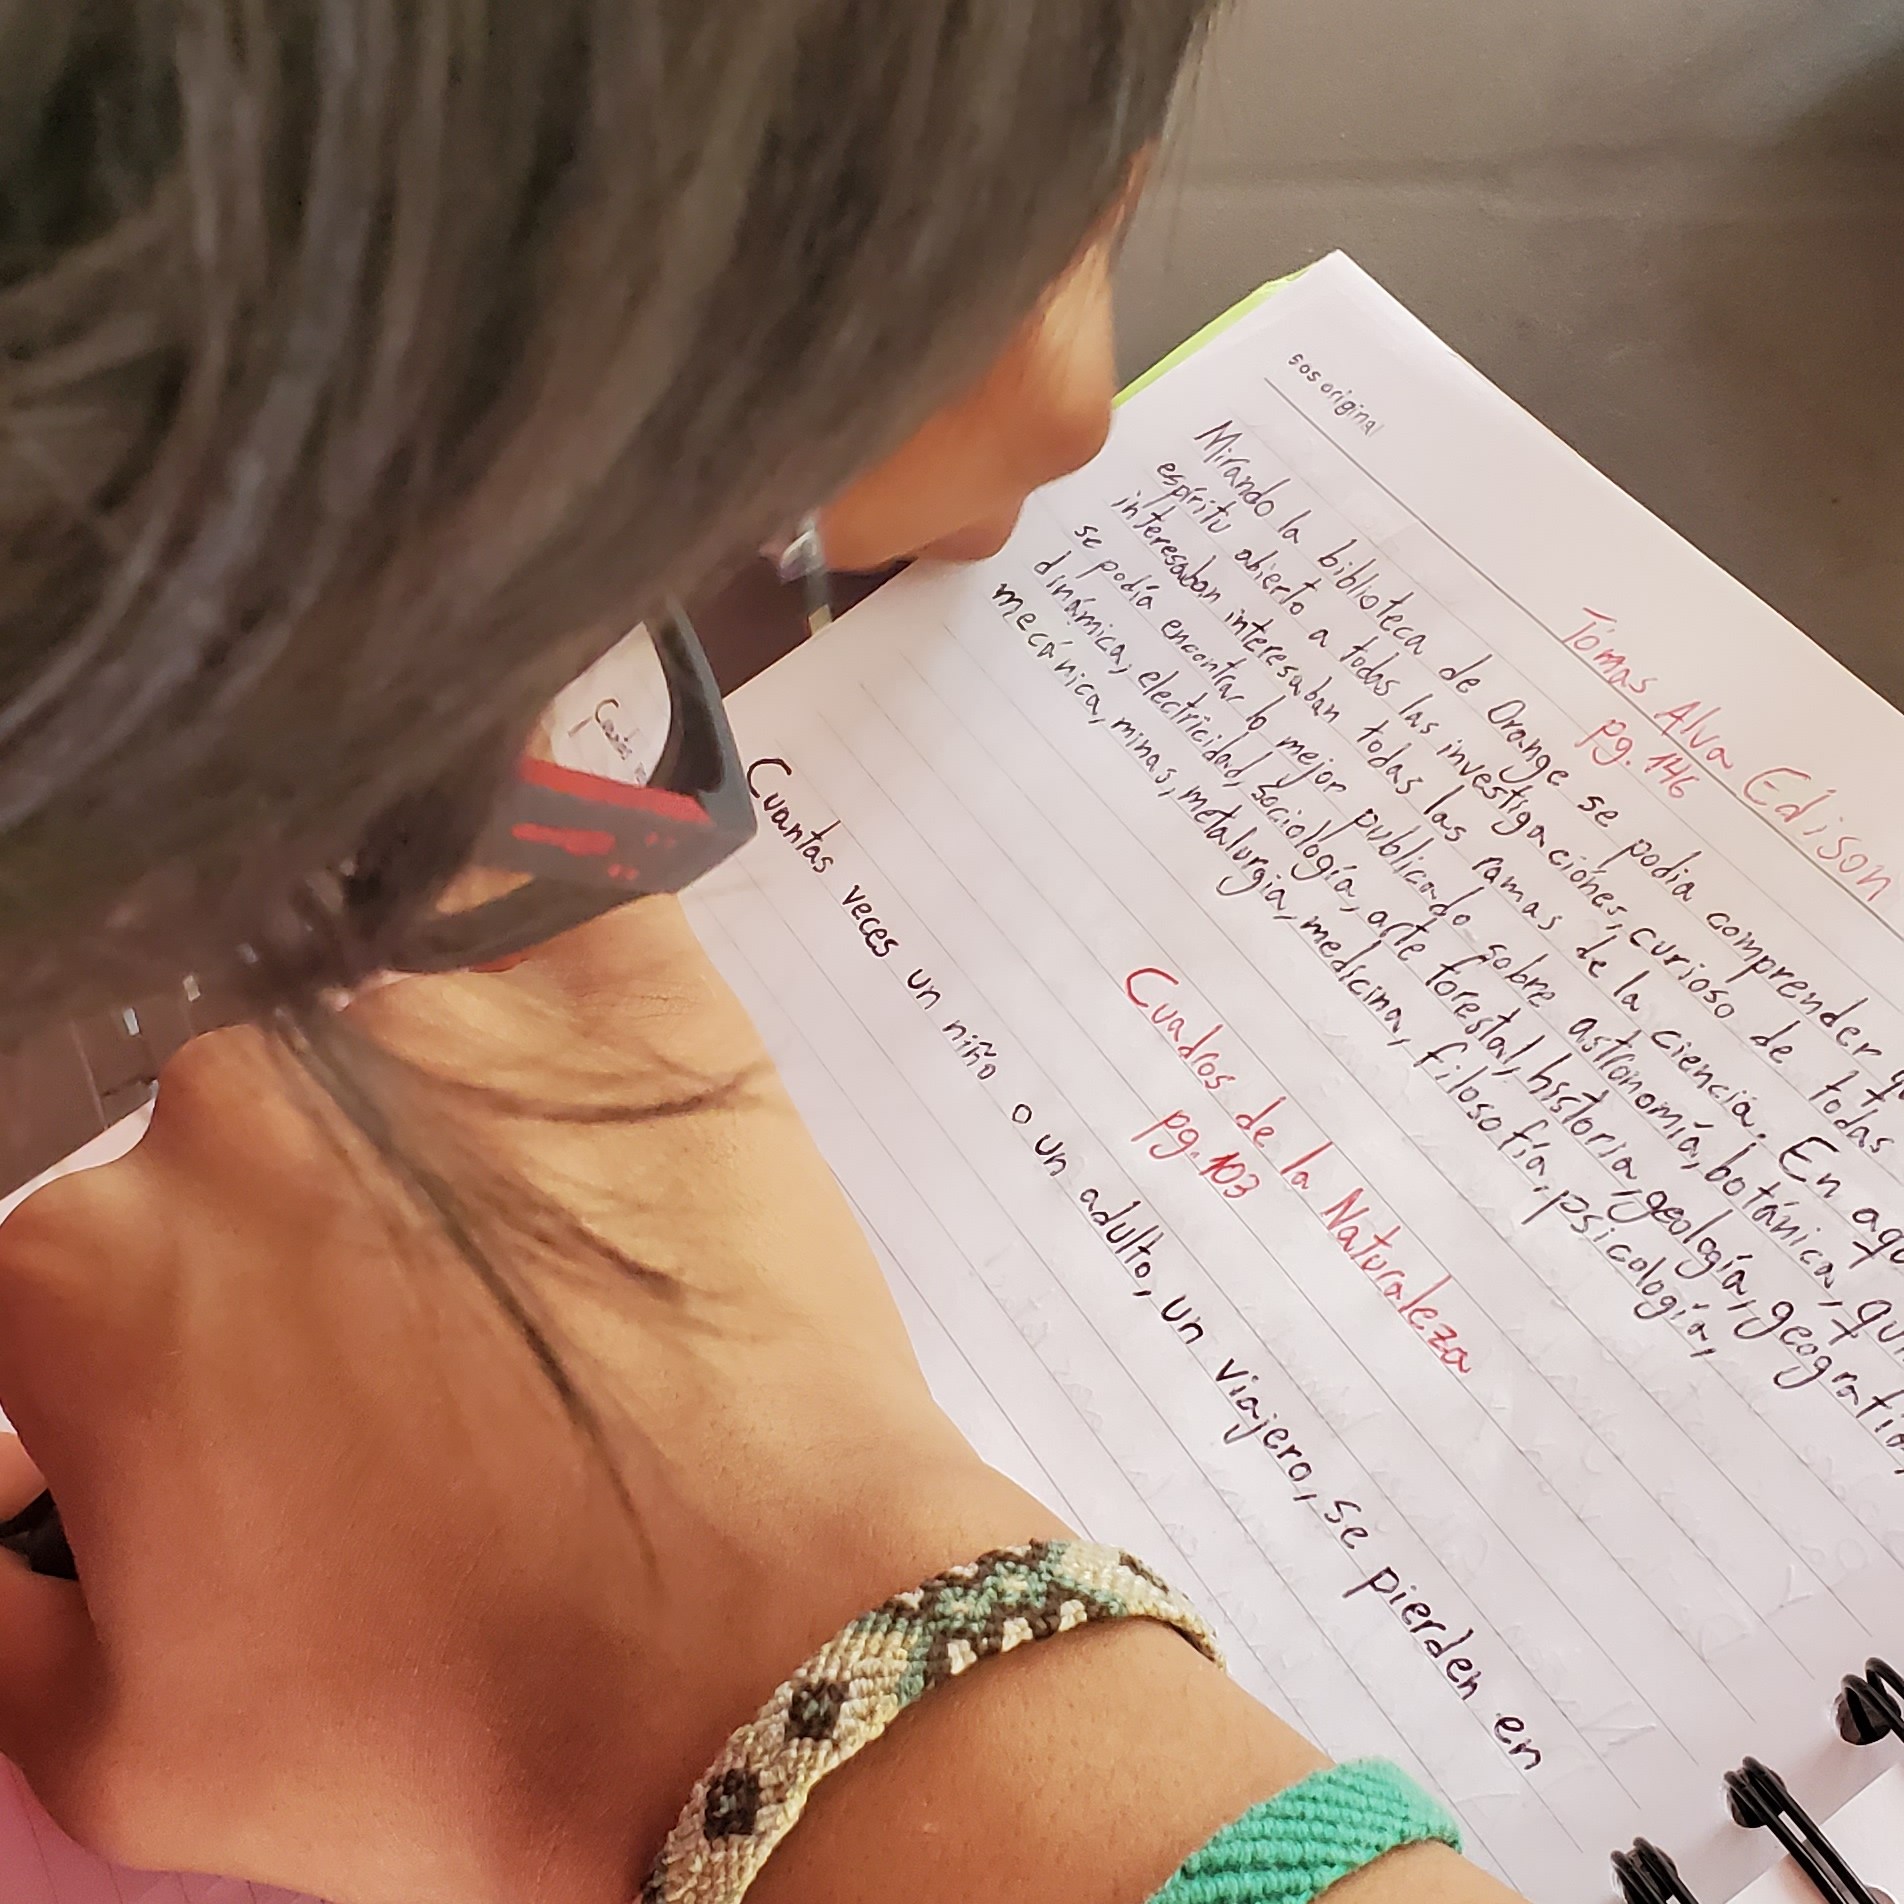 sos original
Tómas Alva Edison
pg. 146
Mirando la biblioteca de Orange se podía comprender
espíritu abierto a todas las investigaciónes, curioso de todas
interesaban interesaban todas las ramas de la ciencia. En
se podía encontrar lo mejor publicado sobre astronomía, botánica,
dinámica, electricidad, sociología, arte forestal, historia, geología, geografía,
mecánica, minas, metalurgia, medicina, filosofía, psicología,
Cuadros de la Naturaleza
pg. 103
Cuantas veces un niño o un adulto, un viajero, se pierden en